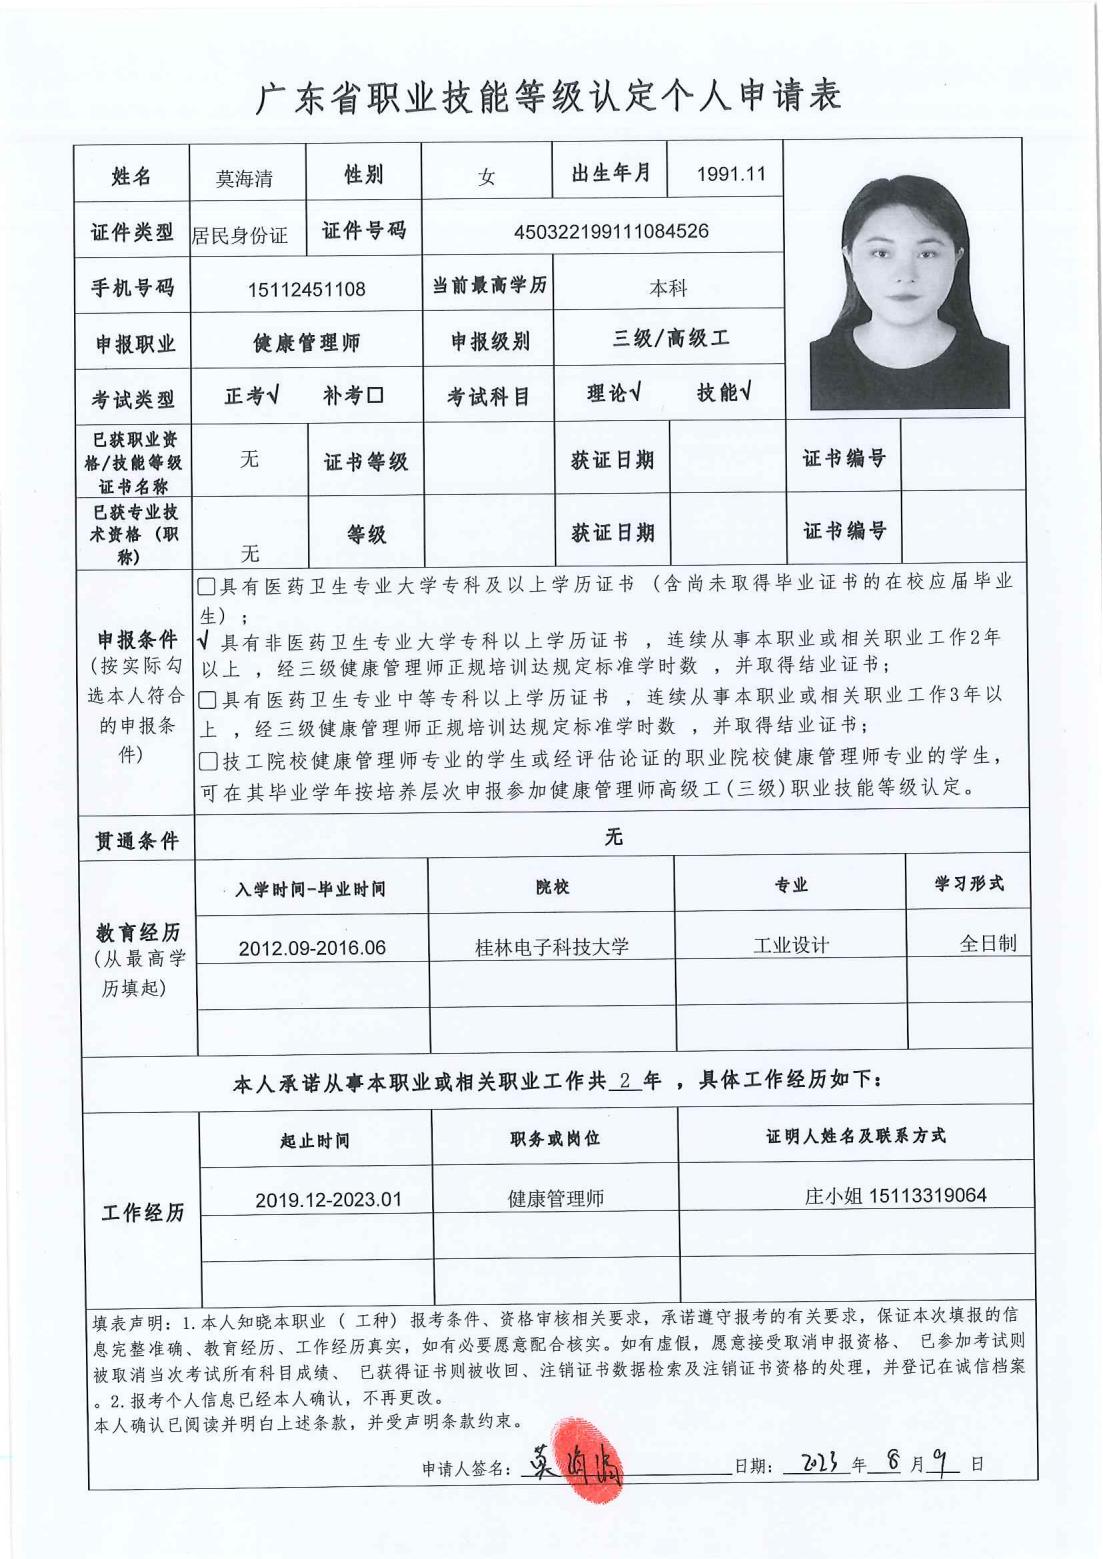 广东省职业技能等级认定个人申请表
姓名 莫海清 性别 女 出生年月 1991.11
证件类型 居民身份证 证件号码 450322199111084526
手机号码 15112451108 当前最高学历 本科
申报职业 健康管理师 申报级别 三级/高级工
考试类型 正考√ 补考□ 考试科目 理论√ 技能√
已获职业资
格/技能等级
证书名称 无 证书等级 获证日期 证书编号
已获专业技
术资格（职
称） 无 等级 获证日期 证书编号
申报条件
(按实际勾
选本人符合
的申报条
件)
□具有医药卫生专业大学专科及以上学历证书（含尚未取得毕业证书的在校应届毕业
生）；
√具有非医药卫生专业大学专科以上学历证书，连续从事本职业或相关职业工作2年
以上，经三级健康管理师正规培训达规定标准学时数，并取得结业证书；
□具有医药卫生专业中等专科以上学历证书，连续从事本职业或相关职业工作3年以
上，经三级健康管理师正规培训达规定标准学时数，并取得结业证书；
□技工院校健康管理师专业的学生或经评估论证的职业院校健康管理师专业的学生，
可在其毕业学年按培养层次申报参加健康管理师高级工(三级)职业技能等级认定。
贯通条件 无
教育经历
(从最高学
历填起)
入学时间-毕业时间 院校 专业 学习形式
2012.09-2016.06 桂林电子科技大学 工业设计 全日制
本人承诺从事本职业或相关职业工作共 2 年，具体工作经历如下：
工作经历
起止时间 职务或岗位 证明人姓名及联系方式
2019.12-2023.01 健康管理师 庄小姐 15113319064
填表声明：1.本人知晓本职业（工种）报考条件、资格审核相关要求，承诺遵守报考的有关要求，保证本次填报的信
息完整准确、教育经历、工作经历真实，如有必要愿意配合核实。如有虚假，愿意接受取消申报资格、已参加考试则
被取消当次考试所有科目成绩、已获得证书则被收回、注销证书数据检索及注销证书资格的处理，并登记在诚信档案
。2.报考个人信息已经本人确认，不再更改。
本人确认已阅读并明白上述条款，并受声明条款约束。
申请人签名：莫海清 日期：2023 年 8 月 9 日